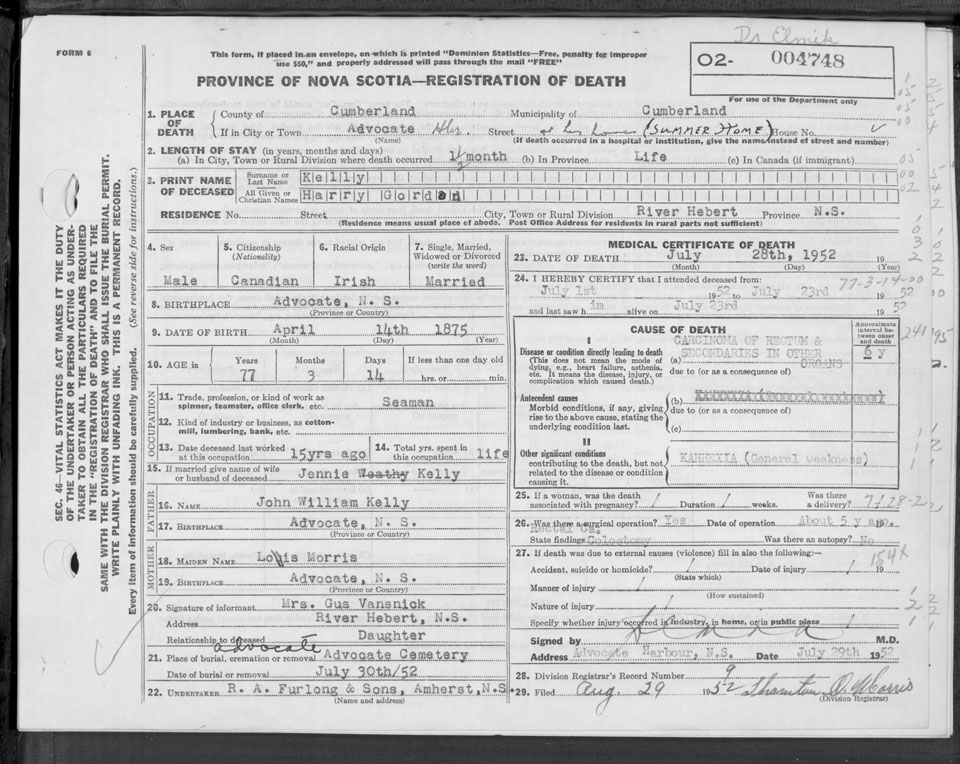 Dr Elmik
FORM 6
This form, if placed in an envelope, on which is printed "Dominion Statistics—Free, penalty for improper
use $50," and properly addressed will pass through the mail "FREE"
PROVINCE OF NOVA SCOTIA—REGISTRATION OF DEATH
O2- 004748
For use of the Department only
1. PLACE OF DEATH
County of Cumberland Municipality of Cumberland
If in City or Town Advocate Hbr. Street at his home (SUMMER HOME) House No.
(Name) (If death occurred in a hospital or institution, give the name instead of street and number)
2. LENGTH OF STAY (in years, months and days)
(a) In City, Town or Rural Division where death occurred month (b) In Province Life (c) In Canada (if immigrant)
3. PRINT NAME OF DECEASED
Surname or Last Name Kelly
All Given or Christian Names Harry Gordon
RESIDENCE No. Street City, Town or Rural Division River Hebert Province N.S.
(Residence means usual place of abode. Post Office Address for residents in rural parts not sufficient)
4. Sex Male
5. Citizenship (Nationality) Canadian
6. Racial Origin Irish
7. Single, Married, Widowed or Divorced (write the word) Married
8. BIRTHPLACE Advocate, N. S.
(Province or Country)
9. DATE OF BIRTH April 14th 1875
(Month) (Day) (Year)
10. AGE in Years Months Days If less than one day old
77 3 14 hrs. or min.
OCCUPATION
11. Trade, profession, or kind of work as spinner, teamster, office clerk, etc. Seaman
12. Kind of industry or business, as cotton-mill, lumbering, bank, etc.
13. Date deceased last worked at this occupation 15yrs ago
14. Total yrs. spent in this occupation life
15. If married give name of wife or husband of deceased Jennie Weathy Kelly
FATHER
16. NAME John William Kelly
17. BIRTHPLACE Advocate, N. S.
(Province or Country)
MOTHER
18. MAIDEN NAME Lois Morris
19. BIRTHPLACE Advocate, N. S.
(Province or Country)
20. Signature of informant Mrs. Gus Vansnick
Address River Hebert, N.S.
Relationship to deceased Daughter
advocate
21. Place of burial, cremation or removal Advocate Cemetery
Date of burial or removal July 30th/52
22. UNDERTAKER R. A. Furlong & Sons, Amherst, N.S.
(Name and address)
MEDICAL CERTIFICATE OF DEATH
23. DATE OF DEATH July 28th, 1952 19
(Month) (Day) (Year)
24. I HEREBY CERTIFY that I attended deceased from: 77-3-14-00
July 1st 1952 to July 23rd 1952
and last saw him alive on July 23rd 1952
CAUSE OF DEATH
Approximate interval between onset and death
I
Disease or condition directly leading to death
(This does not mean the mode of dying, e.g., heart failure, asthenia, etc. It means the disease, injury, or complication which caused death.)
(a) CARCINOMA OF RECTUM & SECONDARIES IN OTHER ORGANS 6 y
due to (or as a consequence of)
Antecedent causes
Morbid conditions, if any, giving rise to the above cause, stating the underlying condition last.
(b)
due to (or as a consequence of)
(c)
II
Other significant conditions
contributing to the death, but not related to the disease or condition causing it.
KAHHEXIA (General weakness)
25. If a woman, was the death associated with pregnancy? / Duration / weeks. Was there a delivery? /
7-28-2
26. Was there a surgical operation? Yes Date of operation About 5 y ago. 19
Rectal Ca.
State findings Colostomy Was there an autopsy? No
27. If death was due to external causes (violence) fill in also the following:—
154X
Accident, suicide or homicide? / Date of injury / 19
(State which)
Manner of injury /
(How sustained)
Nature of injury /
Specify whether injury occurred in industry, in home, or in public place /
Signed by M.D.
Address Advocate Harbour, N.S. Date July 29th 1952
28. Division Registrar's Record Number 9
29. Filed Aug. 29 1952 Thornton D. Morris
(Division Registrar)
SEC. 46—VITAL STATISTICS ACT MAKES IT THE DUTY
OF THE UNDERTAKER OR PERSON ACTING AS UNDER-
TAKER TO OBTAIN ALL THE PARTICULARS REQUIRED
IN THE "REGISTRATION OF DEATH" AND TO FILE THE
SAME WITH THE DIVISION REGISTRAR WHO SHALL ISSUE THE BURIAL PERMIT.
WRITE PLAINLY WITH UNFADING INK. THIS IS A PERMANENT RECORD.
Every item of information should be carefully supplied. (See reverse side for instructions.)